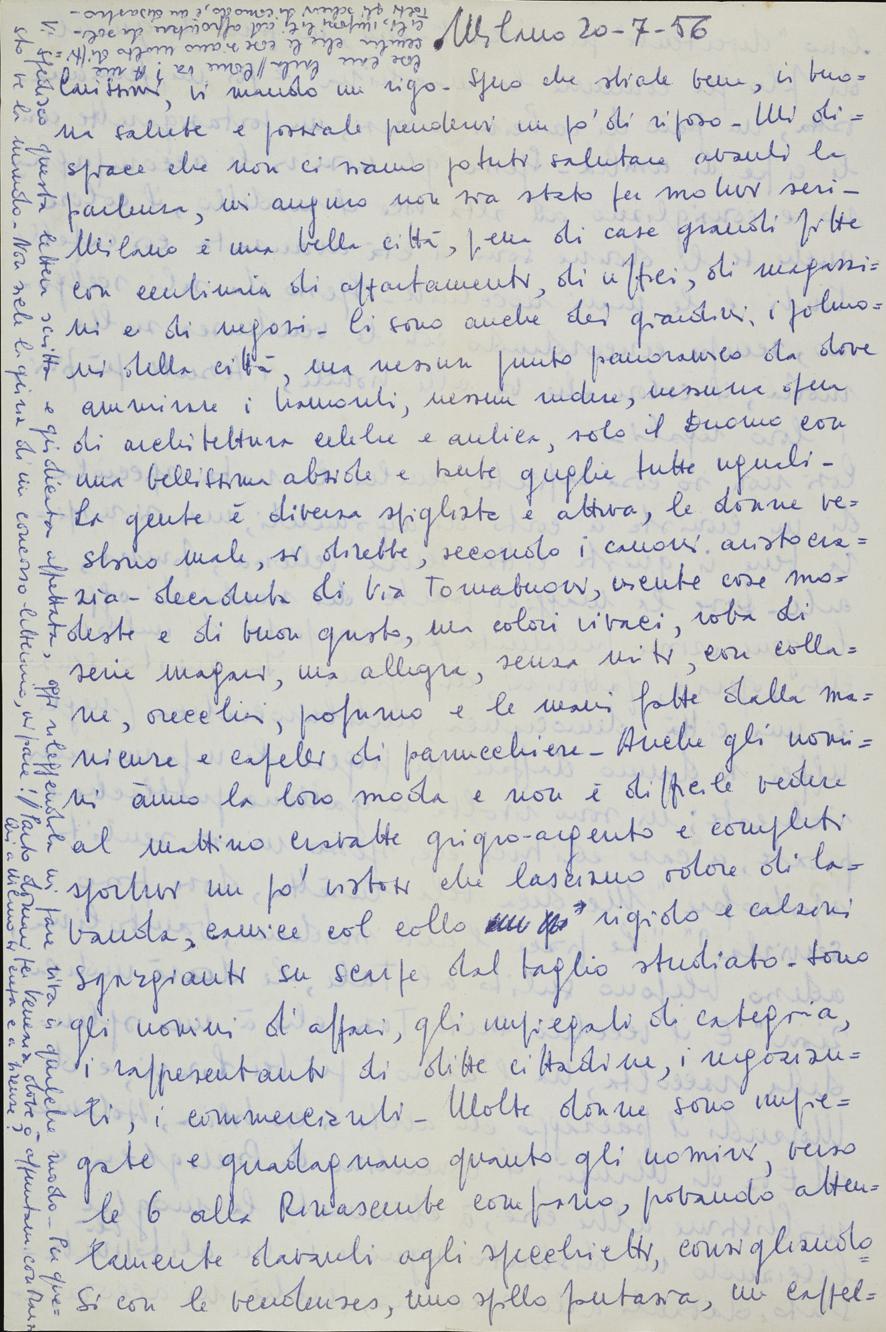 Milano 20-7-56
Carissimi, vi mando un rigo - Spero che stiate bene, in buo=
na salute e possiate prendervi un po' di riposo - Mi di=
spiace che non ci siamo potuti salutare avanti la
partenza, mi auguro non sia stato per motivi seri -
Milano è una bella città, piena di case grandi fitte
con centinaia di appartamenti, di uffici, di magazzi=
ni e di negozi - Ci sono anche dei giardini, i polmo=
ni della città, ma nessun punto panoramico da dove
ammirare i tramonti, nessun rudere, nessuna opera
di architettura celebre e antica, solo il Duomo con
una bellissima abside e tante guglie tutte uguali -
La gente è diversa spigliata e attiva, le donne ve=
stono male, si direbbe, secondo i canoni aristocra=
zia - decaduta di Via Tornabuoni, niente cose mo=
deste e di buon gusto, ma colori vivaci, roba di
serie magari, ma allegra, senza miti, con colla=
ne, orecchini, profumo e le mani fatte dalla ma=
nicure e capelli di parrucchiere - Anche gli uomi=
ni ànno la loro moda e non è difficile vedere
al mattino cravatte grigio-argento e completi
sportivi un po' vistosi che lasciano odore di la=
vanda, camice col collo rigido e calzini
sgargianti su scarpe dal taglio studiato - Sono
gli uomini d'affari, gli impiegati di categoria,
i rappresentanti di ditte cittadine, i negozian=
ti, i commercianti - Molte donne sono impie=
gate e guadagnano quanto gli uomini, verso
le 6 alla Rinascente comprano, provando atten=
tamente davanti agli specchietti, consigliando=
si con le venduses, uno spillo fantasia, un cappel=
Vi spedisco questa lettera scritta e giudicata affrettata, oggi rileggendola mi pare vita in qualche modo - Per que=
sto ve la mando - Non siete la giuria di un concorso letterario, vi pare! // Parto domani per Venezia dove ò appuntam. con
Qui a Milano
cose Lan Carla // Come va? A me
sembra che le cose siano molto
tutti gli schemi di comodo, un disastro -